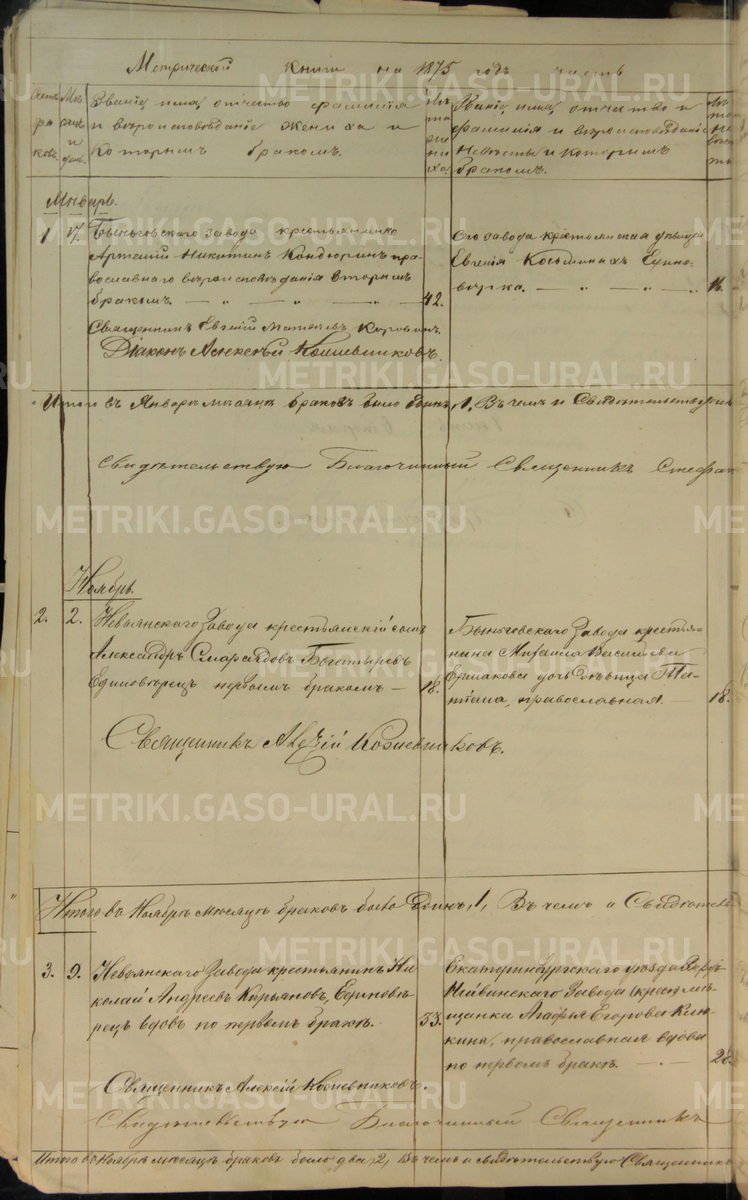 Метрической книги на 1875 годъ часть
Счетъ браковъ. Мѣсяцъ и день.
Званіе, имя, отчество фамилія
и вѣроисповѣданіе жениха и
которымъ бракомъ.
Лѣта жениха
Званіе, имя, отчество и
фамилія и вѣроисповѣданіе
невѣсты и которымъ
бракомъ.
Январь.
1 17. Быньговскаго завода крестьянинъ
Артемій Никитинъ Кондюринъ пра-
вославнаго вѣроисповѣданія вторымъ
бракомъ. 42.
Его завода крестьянская дѣвица
Евгенія Косьминыхъ Едино-
вѣрка. 16.
Священникъ Евгеній Матвѣевъ Коровинъ.
Діаконъ Алексѣй Кожевниковъ.
Итого въ Январѣ мѣсяцѣ браковъ было одинъ, 1, Въ чемъ и Свидѣтельствуемъ
Свидѣтельствую Благочинный Священникъ Стефан
Ноябрь.
2. 2. Невьянскаго Завода крестьянскій сынъ
Александръ Смарагдовъ Богатыревъ
Единовѣрецъ первымъ бракомъ 18.
Быньговскаго Завода крестья-
нина Михаила Васильева
Ермакова дочь дѣвица Та-
тіана, православная. 18.
Священникъ Алексій Кожевниковъ.
Итого въ Ноябрѣ мѣсяцѣ браковъ было одинъ, 1, Въ чемъ и Свидѣтель
3. 9. Невьянскаго Завода крестьянинъ Ни-
колай Андреевъ Кирьяновъ, Единовѣ-
рецъ вдовъ по первомъ бракѣ. 33.
Екатеринбургскаго уѣзда Верх
Нейвинскаго Завода мѣ-
щанка Агафья Егорова
православная вдова
по первомъ бракѣ. 28.
Священникъ Алексій Кожевниковъ.
Свидѣтельствую Благочинный Священникъ
Итого въ Ноябрѣ мѣсяцѣ браковъ было два, 2, Въ чемъ и свидѣтельствую Священникъ
METRIKI.GASO-URAL.RU